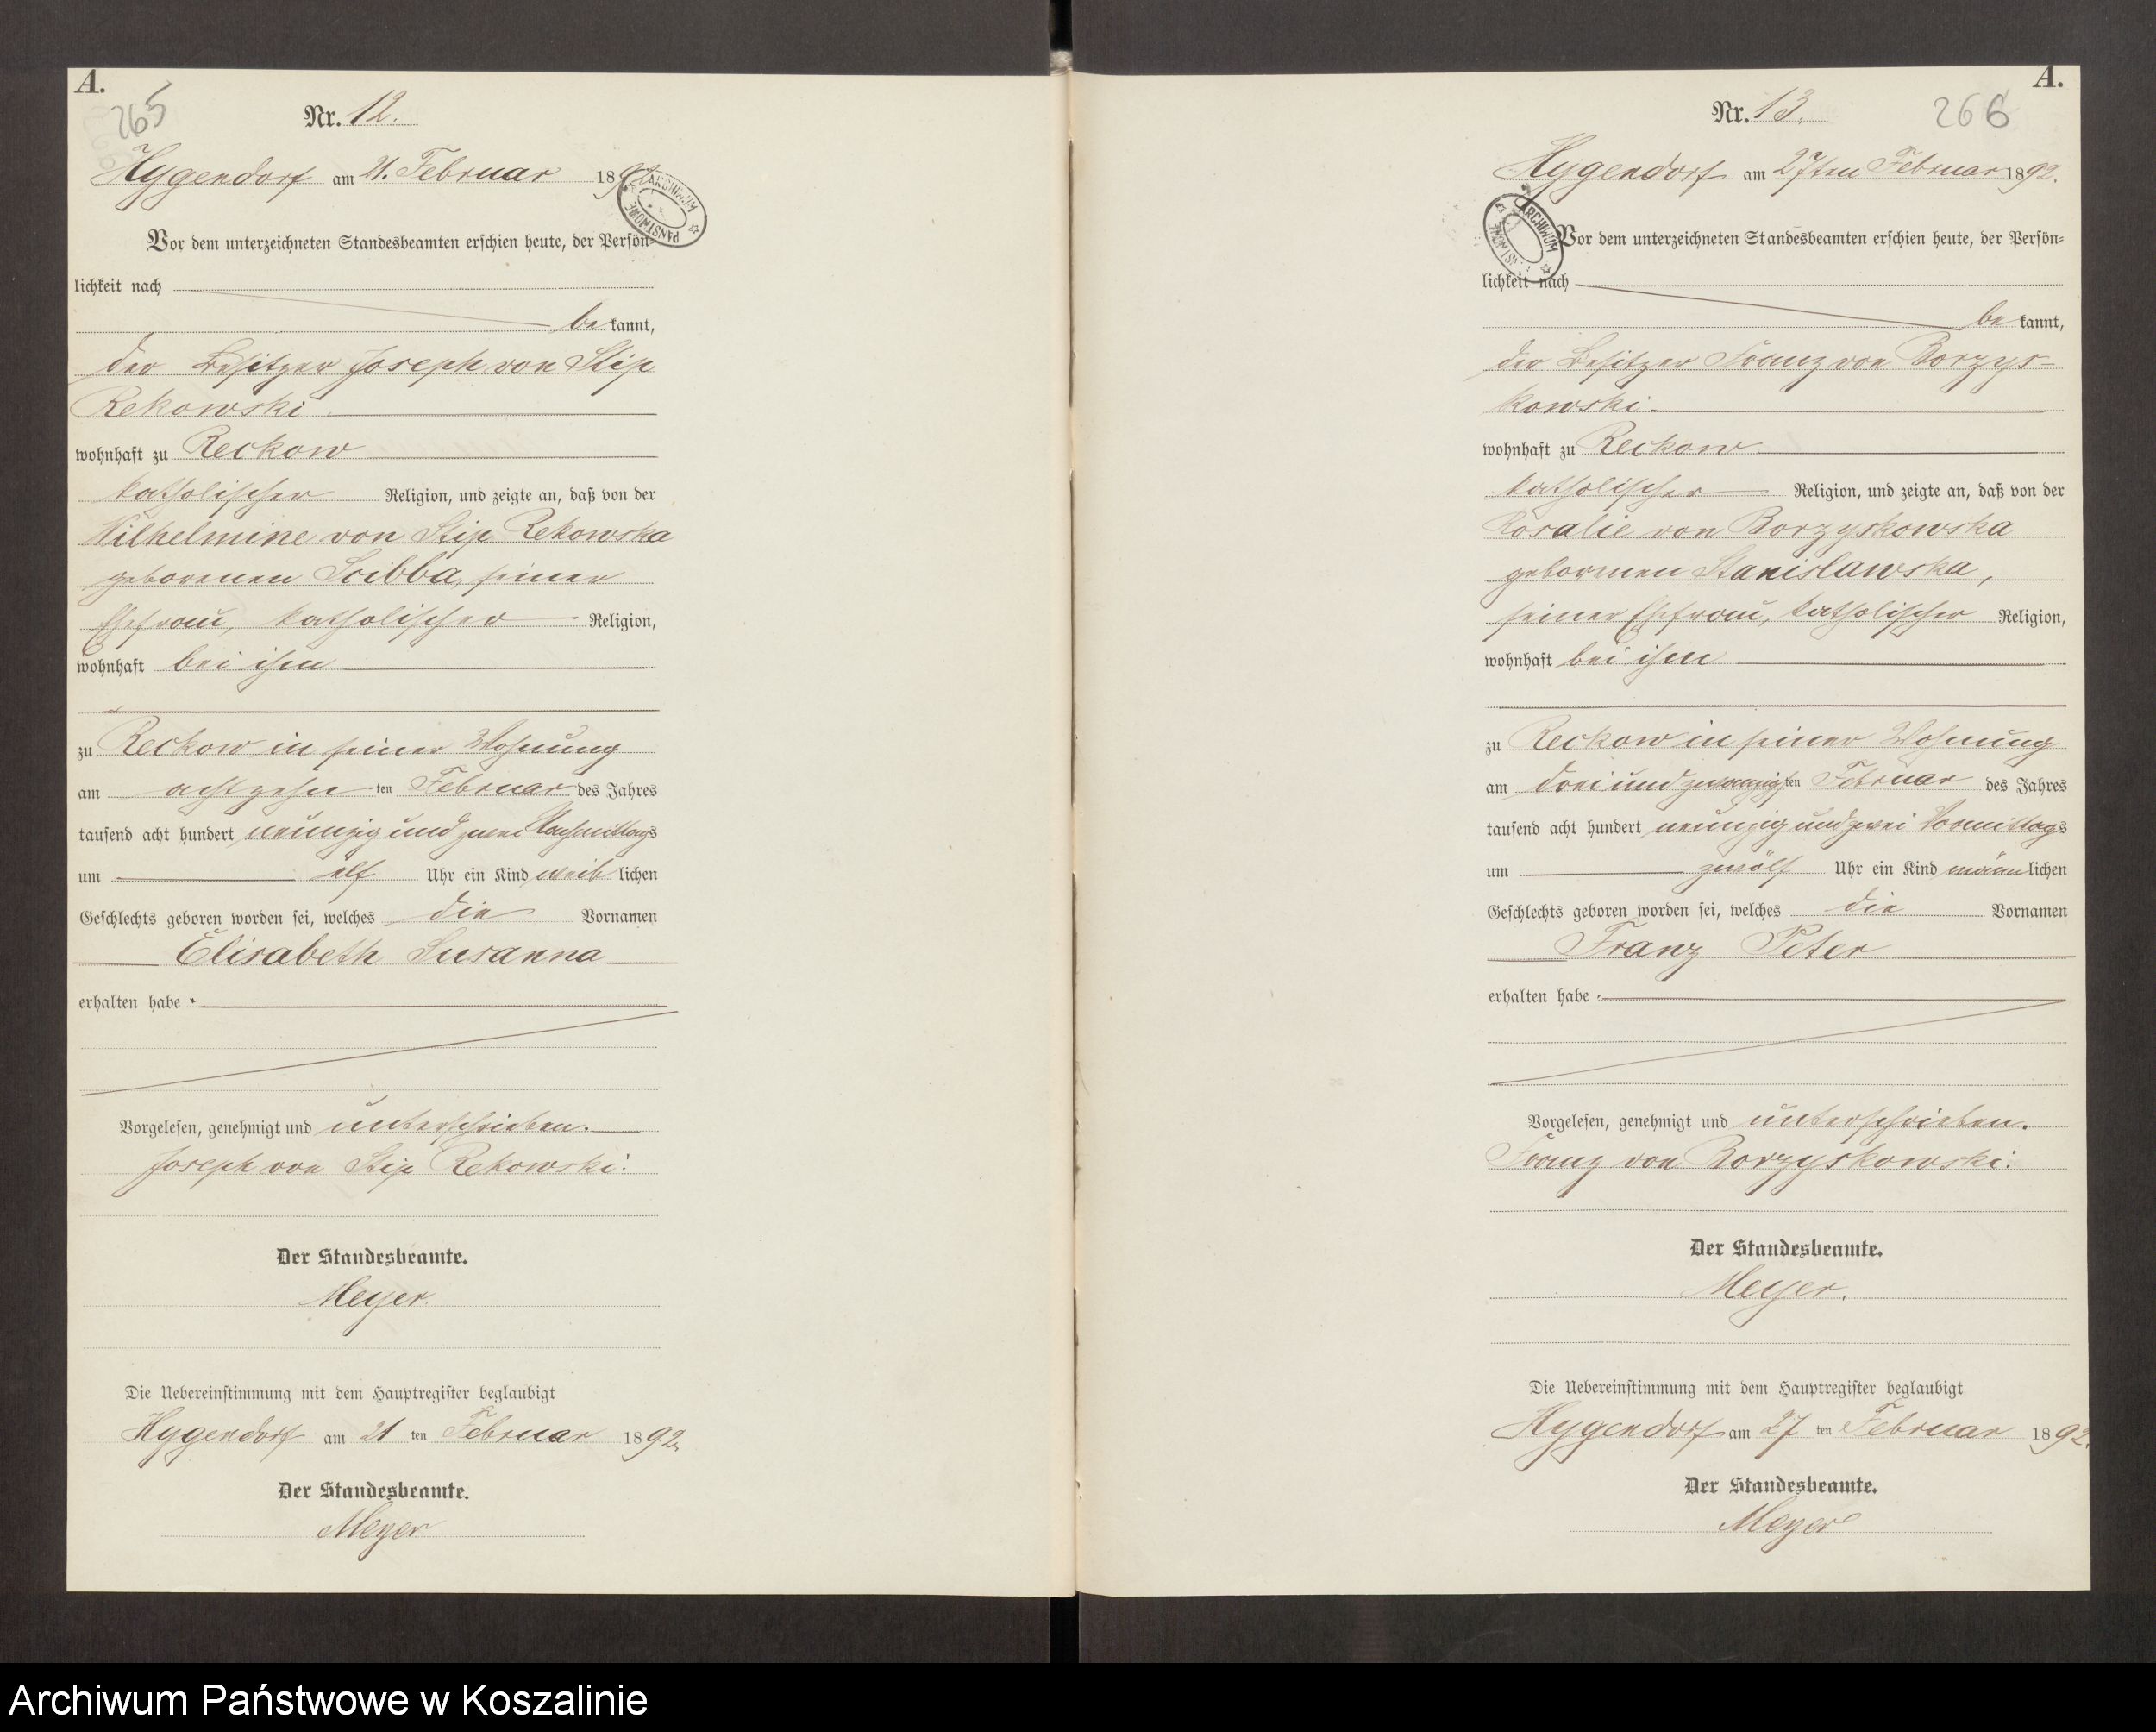 A.
265
Nr. 12.
Hygendorf am 21. Februar 1892
ARCHIWUM PAŃSTWOWE
Vor dem unterzeichneten Standesbeamten erschien heute, der Persön-
lichkeit nach
be kannt,
der Besitzer Joseph von Stip
Rekowski
wohnhaft zu Reckow
katholischer Religion, und zeigte an, daß von der
Wilhelmine von Stip Rekowska
geborenen Scibba, seiner
Ehefrau, katholischer Religion,
wohnhaft bei ihm
zu Reckow in seiner Wohnung
am achtzehn ten Februar des Jahres
tausend acht hundert neunzig und zwei Nachmittags
um elf Uhr ein Kind weib lichen
Geschlechts geboren worden sei, welches die Vornamen
Elisabeth Susanna
erhalten habe.
Vorgelesen, genehmigt und unterschrieben.
Joseph von Stip Rekowski.
Der Standesbeamte.
Meyer.
Die Uebereinstimmung mit dem Hauptregister beglaubigt
Hygendorf am 21 ten Februar 1892.
Der Standesbeamte.
Meyer
A.
266
Nr. 13.
Hygendorf am 27ten Februar 1892.
ARCHIWUM
Vor dem unterzeichneten Standesbeamten erschien heute, der Persön-
lichkeit nach
be kannt,
der Besitzer Franz von Borzys-
kowski
wohnhaft zu Reckow
katholischer Religion, und zeigte an, daß von der
Rosalie von Borzyskowska
geborenen Stanislawska,
seiner Ehefrau, katholischer Religion,
wohnhaft bei ihm
zu Reckow in seiner Wohnung
am drei und zwanzigsten Februar des Jahres
tausend acht hundert neunzig und zwei Vormittags
um zwölf Uhr ein Kind männlichen
Geschlechts geboren worden sei, welches die Vornamen
Franz Peter
erhalten habe.
Vorgelesen, genehmigt und unterschrieben.
Franz von Borzyskowski.
Der Standesbeamte.
Meyer.
Die Uebereinstimmung mit dem Hauptregister beglaubigt
Hygendorf am 27 ten Februar 1892.
Der Standesbeamte.
Meyer
Archiwum Państwowe w Koszalinie